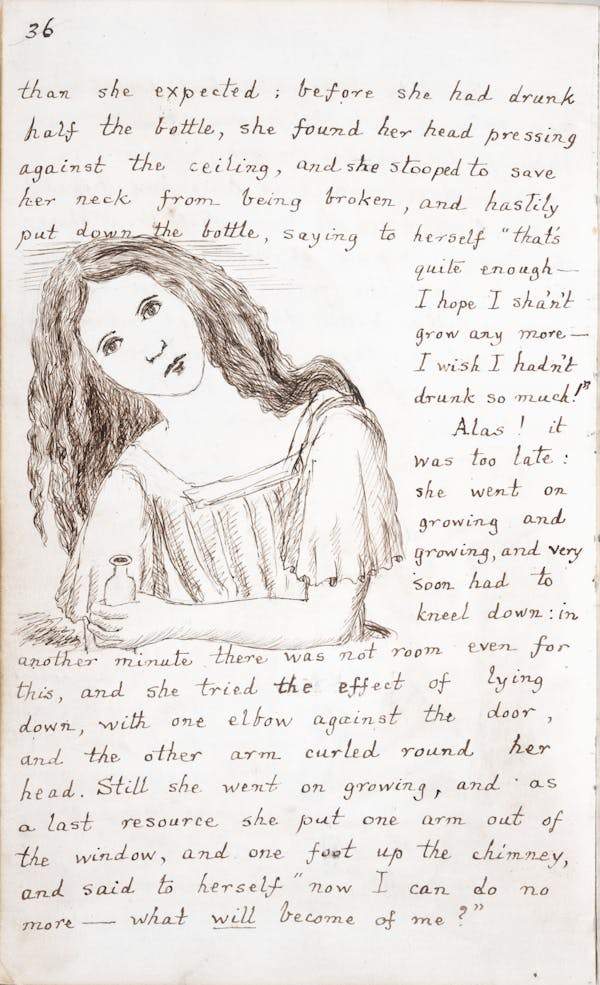 36
than she expected ; before she had drunk
half the bottle, she found her head pressing
against the ceiling, and she stooped to save
her neck from being broken, and hastily
put down the bottle, saying to herself "that's
quite enough—
I hope I sha'n't
grow any more—
I wish I hadn't
drunk so much!"
Alas! it
was too late:
she went on
growing and
growing, and very
soon had to
kneel down: in
another minute there was not room even for
this, and she tried the effect of lying
down, with one elbow against the door,
and the other arm curled round her
head. Still she went on growing, and as
a last resource she put one arm out of
the window, and one foot up the chimney,
and said to herself "now I can do no
more — what will become of me?"